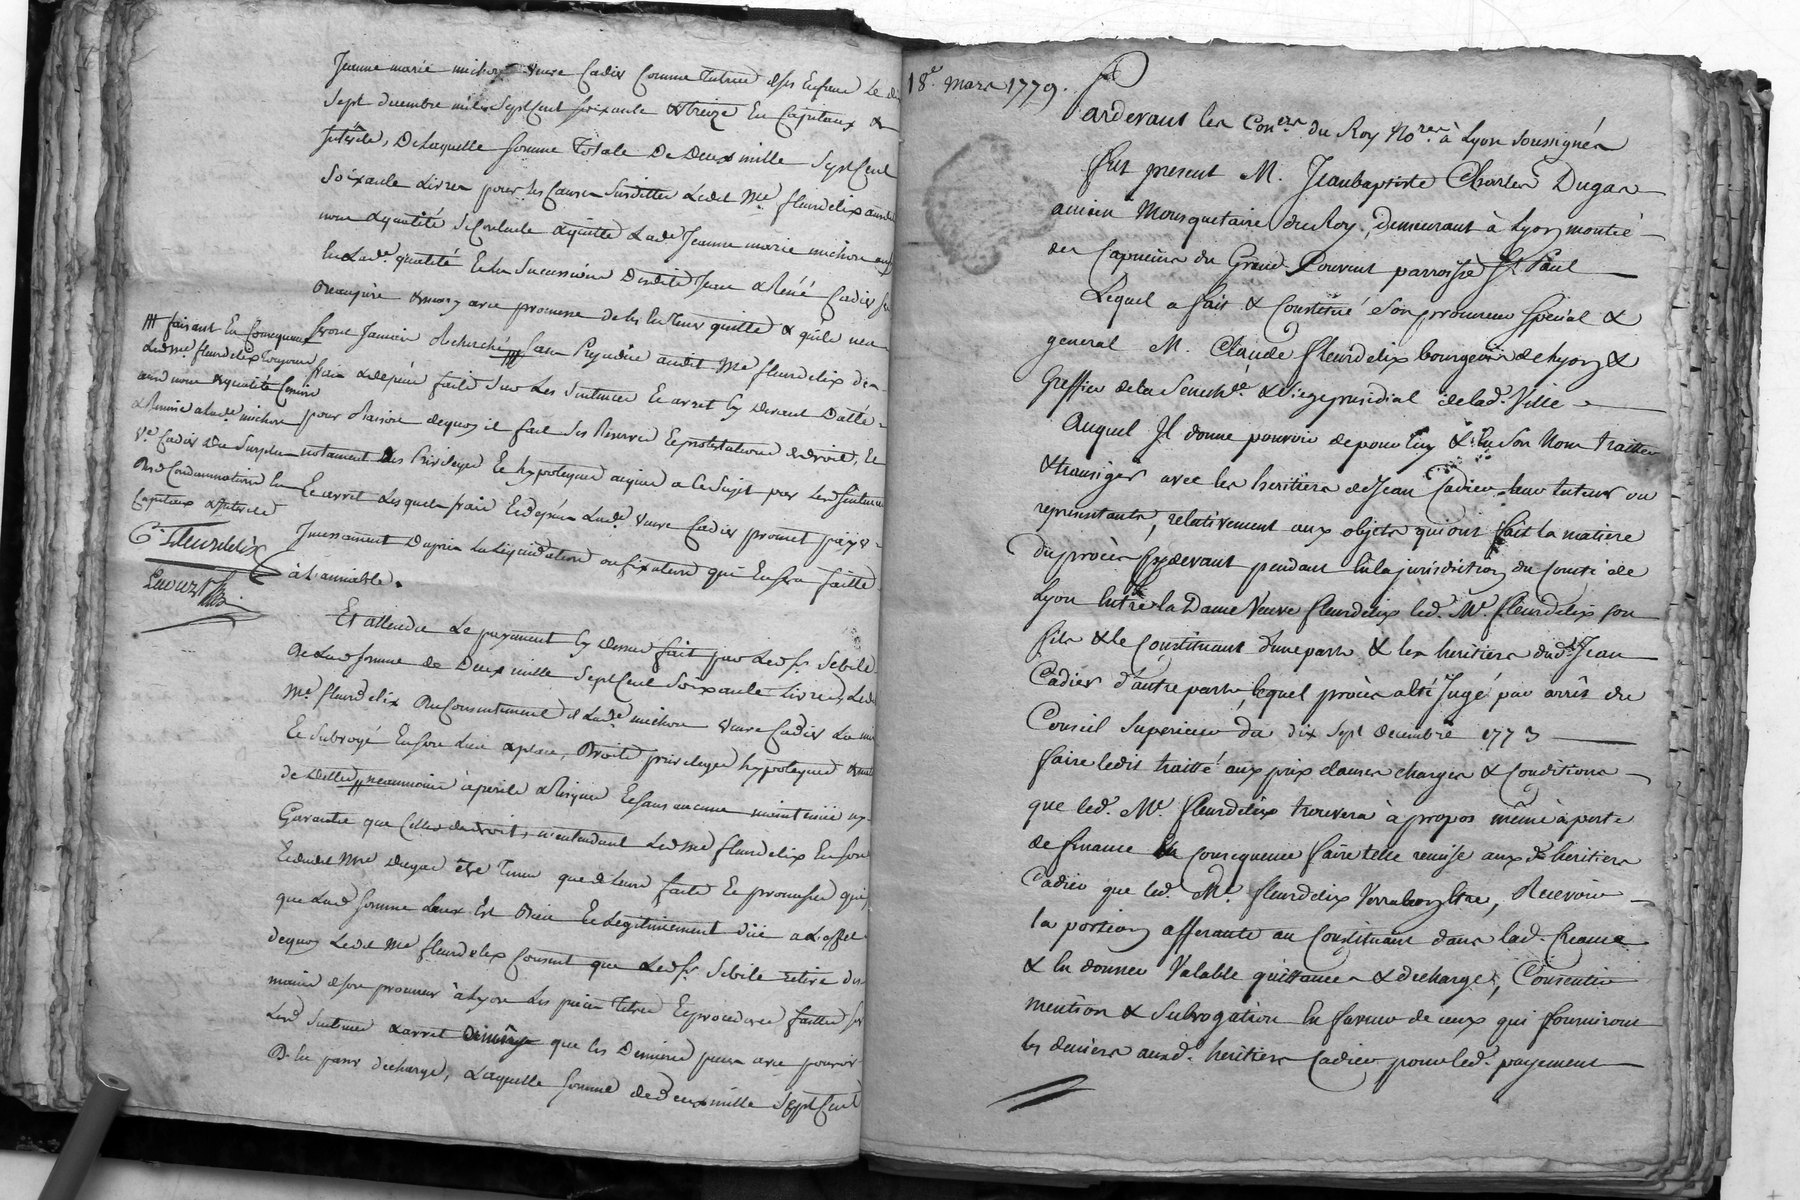 Jeanne marie michon veuve Cadier Comme tutrice de ses Enfans le dix
Sept decembre mil Sept Cent soixante & treize En Capitaux &
Interets, De laquelle somme totale De Deux mille Sept Cent
Soixante Livres pour les Causes susdittes Ledit Me. fleurdelix
nom & qualité Se Contente & quitte lade. Jeanne marie michon
En lade. qualité Et la Succession dudit Jean & René Cadier
& avec promesse de les En tenir quitte & qu'ils n'en
seront Jamais Recherché # sans Prejudice audit Me fleurdelix des
frais & depens faits Sur Les Sentences Et arret cy devant Datté
pour Raison dequoy il fait Ses Reserves Et protestations de droit, Et
notament des Privileges Et hypoteques acquis a ce Sujet par lesd. Sentences
Et arret Lesquels frais Et depens Lade. veuve Cadier promet payer
Incessament Dapres La Liquidation ou fixation qui En sera faitte
à L'amiable.
# faisant En Consequence
Ledit Me. fleurdelix toujours
aud nom & qualité Remise
& Remise a Lade. michon
Ve. Cadier du Surplus
des Condamnations En
Capitaux & Interets
C. Fleurdelix
Et attendu Le payement cy dessus fait par Led. sr. Sebile
de Lad. somme de Deux mille Sept Cent Soixante Livres, Led.
Me. fleurdelix Du Consentement de Lade. michon veuve Cadier La mis
Et Subrogé En son Lieu & place, Droits privileges hypoteques &
neanmoins à perils & Risques Et sans aucune maintenüe ny
Garantie que Celles de droit, n'entendant Led. Me fleurdelix En son
Et dudit Mre dugas etre tenu que de leurs faits Et promesses
que Lad. somme Leur Est Bien Et Legitimement düe a L'effet
dequoy Ledit Me fleurdelix Consent que Led. sr. Sebile retire des
mains de son procureur à Lyon Les pieces titres Et procedures faittes
Lesd. Sentences & arret que les Dernieres pieces avec pouvoir
D'En passer decharge, Laquelle somme de Deux mille Sept Cent
18e. Mars 1779.
Pardevant les Coners. du Roy Nores. à Lyon soussignés
fut present M. Jean baptiste Charles Dugas
ancien Mousquetaire du Roy, demeurant à Lyon montée
des Capucins du Grand Couvent parroisse St. Paul
Lequel a fait & Constitué son procureur spécial &
general M. Claude fleurdelix bourgeois de Lyon &
Greffier de la Senechée. & Siege presidial de lad. Ville
Auquel Il donne pouvoir de pour luy & En Son Nom traitter
& transiger avec les heritiers de Jean Cadier leur tuteur ou
representants, relativement aux objets qui ont fait la matiere
du procès cy devant pendant En la jurisdiction du Comté de
Lyon Entre la Dame Veuve fleurdelix led. Mr. fleurdelix son
fils & le Constituant d'une part & les heritiers dud. Jean
Cadier d'autre part, lequel procès a été Jugé par arrêt du
Conseil Superieur du dix Sept decembre 1773
faire ledit traitté aux prix clauses charges & Conditions
que led. Mr. fleurdelix trouvera à propos même à perte
de finance En Consequence faire telle remise auxd. heritiers
Cadier que led. Mr. fleurdelix Verra bon Etre, Recevoir
la portion afferante au Constituant dans lad. Creance
& En donner Valable quittance & decharge, Consentir
mention & Subrogation En faveur de ceux qui fourniront
les deniers auxd. heritiers Cadier pour led. payement